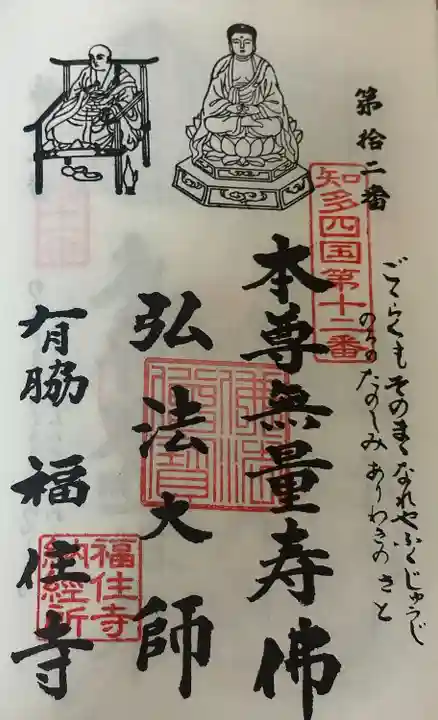 第拾二番
知多四国第十二番
ごくらくも そのまゝなれや ふくじゅうじ
のりの たのしみ ありわきの さと
本尊無量寿佛
弘法大師
佛法
僧寶
有脇 福住寺
福住寺
納経所